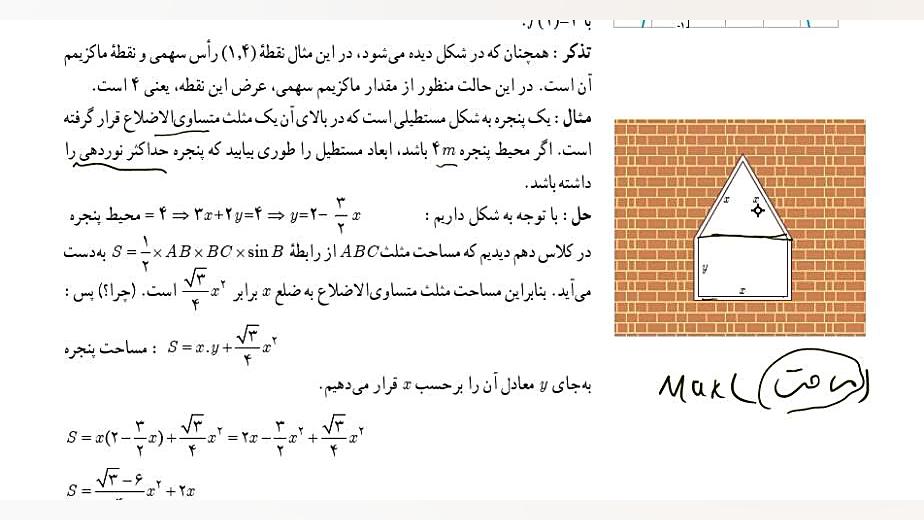 تذکر : همچنان که در شکل دیده می‌شود، در این مثال نقطهٔ (۱,۴) رأس سهمی و نقطهٔ ماکزیمم
آن است. در این حالت منظور از مقدار ماکزیمم سهمی، عرض این نقطه، یعنی ۴ است.
مثال : یک پنجره به شکل مستطیلی است که در بالای آن یک مثلث متساوی‌الاضلاع قرار گرفته
است. اگر محیط پنجره ۴m باشد، ابعاد مستطیل را طوری بیابید که پنجره حداکثر نوردهی را
داشته باشد.
حل : با توجه به شکل داریم : محیط پنجره = ۴ ⇒ ۳x+۲y=۴ ⇒ y=۲− ۳/۲ x
در کلاس دهم دیدیم که مساحت مثلث ABC از رابطهٔ S = ۱/۲ × AB × BC × sin B به‌دست
می‌آید. بنابراین مساحت مثلث متساوی‌الاضلاع به ضلع x برابر √۳/۴ x² است. (چرا؟) پس :
مساحت پنجره : S = x.y + √۳/۴ x²
به‌جای y معادل آن را برحسب x قرار می‌دهیم.
S = x(۲−۳/۲x)+√۳/۴ x² = ۲x−۳/۲x²+√۳/۴ x²
S = √۳−۶/۴ x² + ۲x
x x
y
x
Max (مساحت)